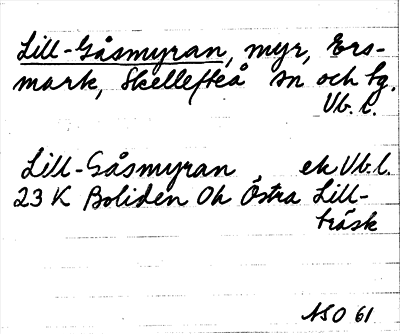 Lill-Gåsmyran, myr, Ers-
mark, Skellefteå sn och tg.
Vb. l.
Lill-Gåsmyran ek Vb. l.
23 K Boliden Oh Östra Lill-
träsk
NSO 61